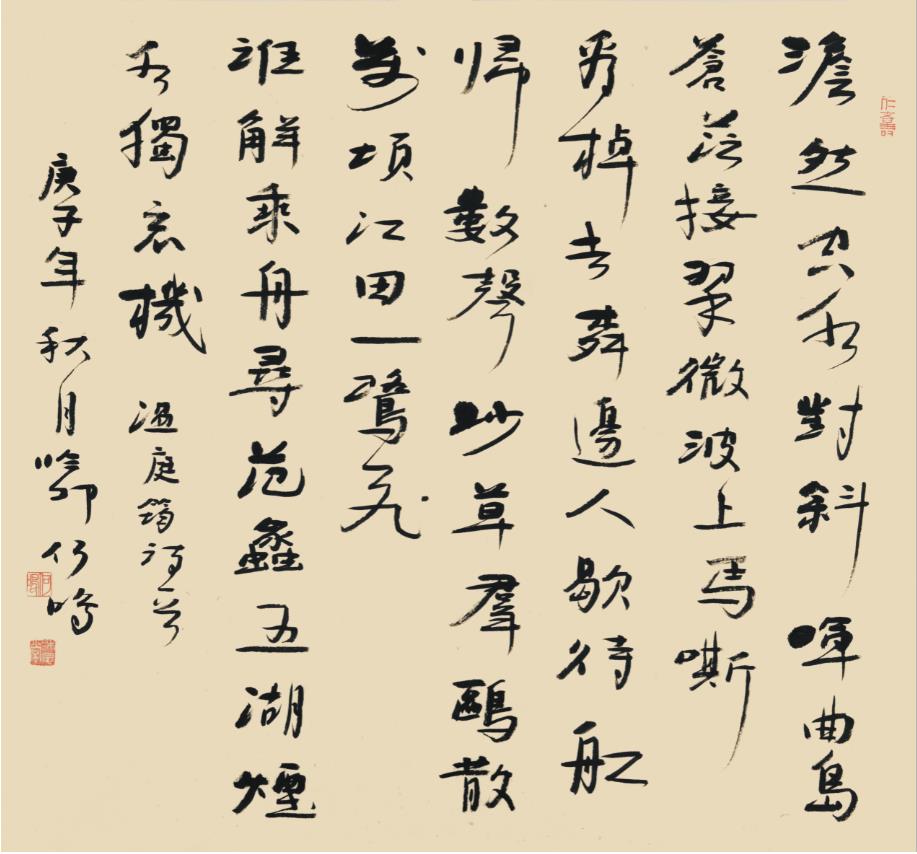 仁壽
澹然空水對斜暉曲島
蒼茫接翠微波上馬嘶
看棹去邊人歇待舡
歸數聲沙草羣鷗散
萬頃江田一鷺飛
誰解乘舟尋范蠡五湖煙
水獨忘機 溫庭筠詩一首
庚子年秋月何鳴